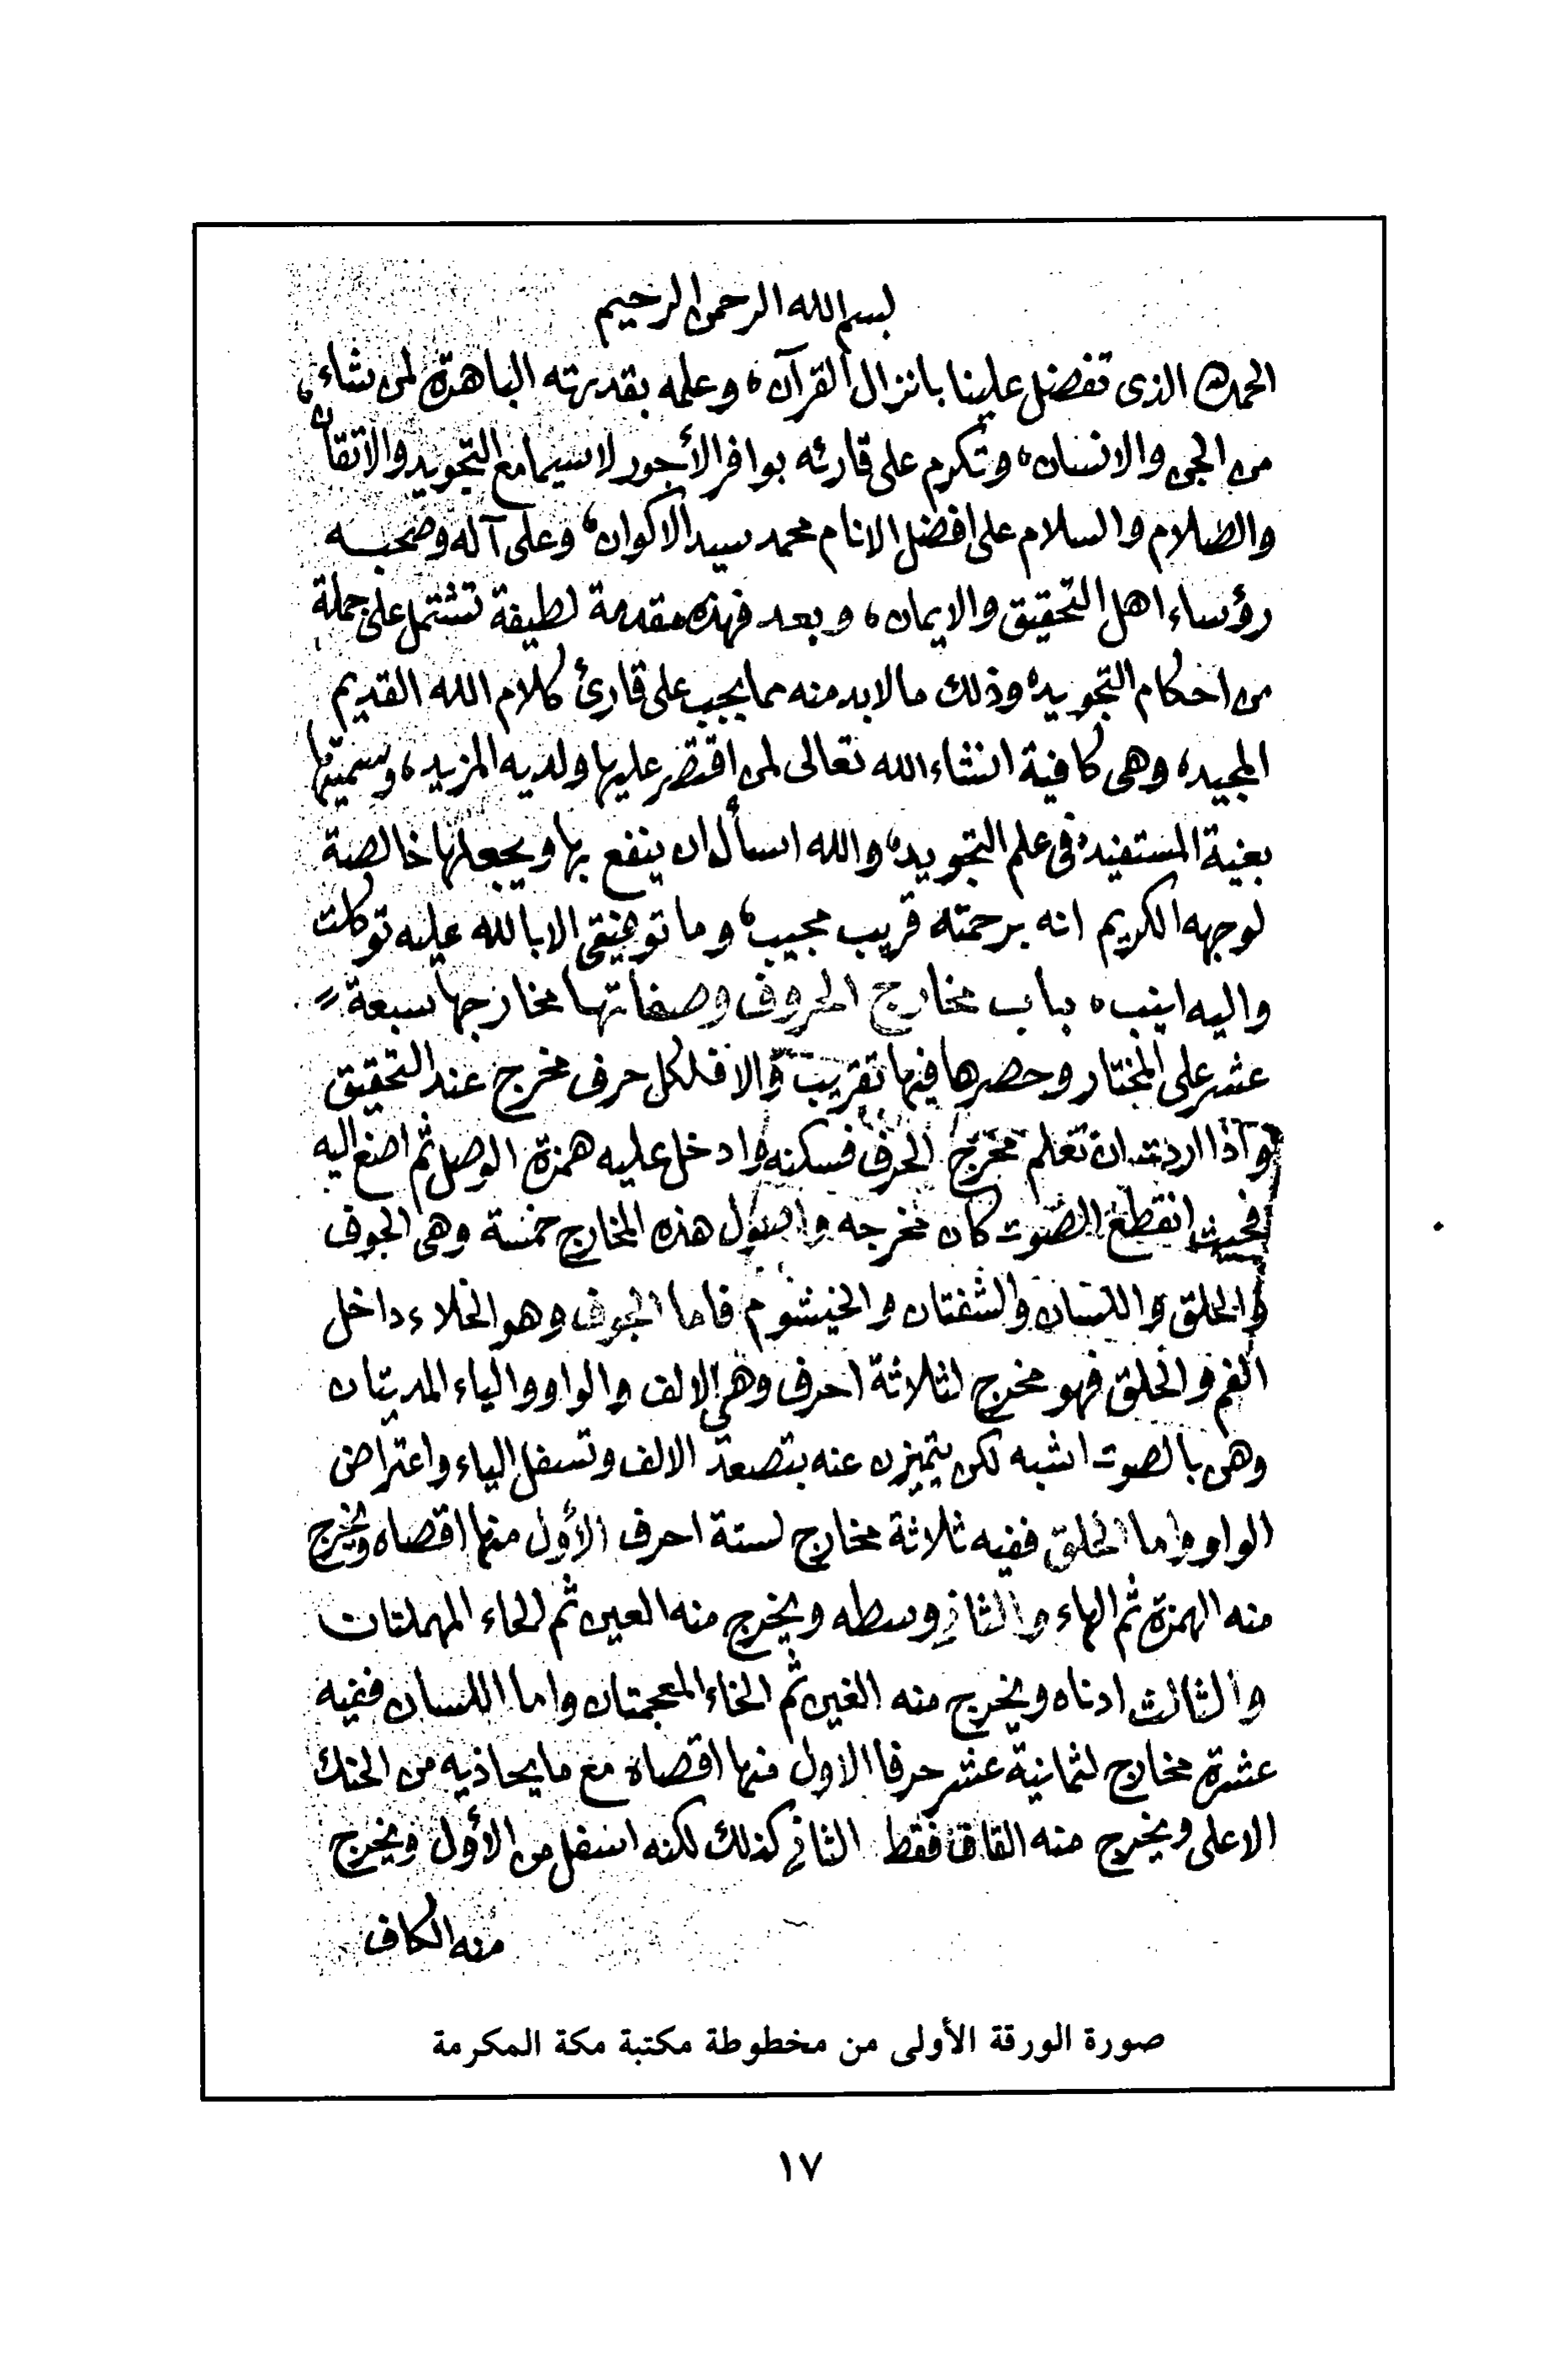 بسم الله الرحمن الرحيم
الحمد لله الذى تفضل علينا بانزال القرآن، وعلمه بقدرته الباهرة لمن يشاء،
من الجن والانسان، وتكرم على قارئه بوافر الأجور لاسيما مع التجويد والاتقان
والصلاة والسلام على افضل الانام محمد سيد الاكوان، وعلى آله وصحبه
رؤساء اهل التحقيق والايمان، وبعد فهذه مقدمة لطيفة تشتمل على جملة
من احكام التجويد، وذلك مالابد منه مما يجب على قارئ كلام الله القديم
المجيد، وهى كافية ان شاء الله تعالى لمن اقتصر عليها ولديه المزيد، وسميتها
بغية المستفيد، فى علم التجويد، والله اسأل ان ينفع بها ويجعلها خالصة
لوجهه الكريم انه برحمته قريب مجيب، وما توفيقى الا بالله عليه توكلت
واليه انيب، باب مخارج الحروف وصفاتها مخارجها سبعة
عشر على المختار وحصرها فيها تقريب والا فلكل حرف مخرج عند التحقيق
واذا اردت ان تعلم مخرج الحرف فسكنه وادخل عليه همزة الوصل ثم اصغ اليه
فحيث انقطع الصوت كان مخرجه واصول هذه المخارج خمسة وهى الجوف
والحلق واللسان والشفتان والخيشوم فاما الجوف وهو الخلاء داخل
الفم والحلق فهو مخرج لثلاثة احرف وهى الالف والواو والياء المديتان
وهى بالصوت اشبه لكن يتميزن عنه بتصعد الالف وتسفل الياء واعتراض
الواو واما الحلق ففيه ثلاثة مخارج لستة احرف الأول منها اقصاه ويخرج
منه الهمزة ثم الهاء والثانى وسطه ويخرج منه العين ثم الحاء المهملتان
والثالث ادناه ويخرج منه الغين ثم الخاء المعجمتان واما اللسان ففيه
عشرة مخارج لثمانية عشر حرفا الاول منها اقصاه مع مايحاذيه من الحنك
الاعلى ويخرج منه القاف فقط الثانى كذلك لكنه اسفل من الأول ويخرج
منه الكاف
صورة الورقة الأولى من مخطوطة مكتبة مكة المكرمة
١٧